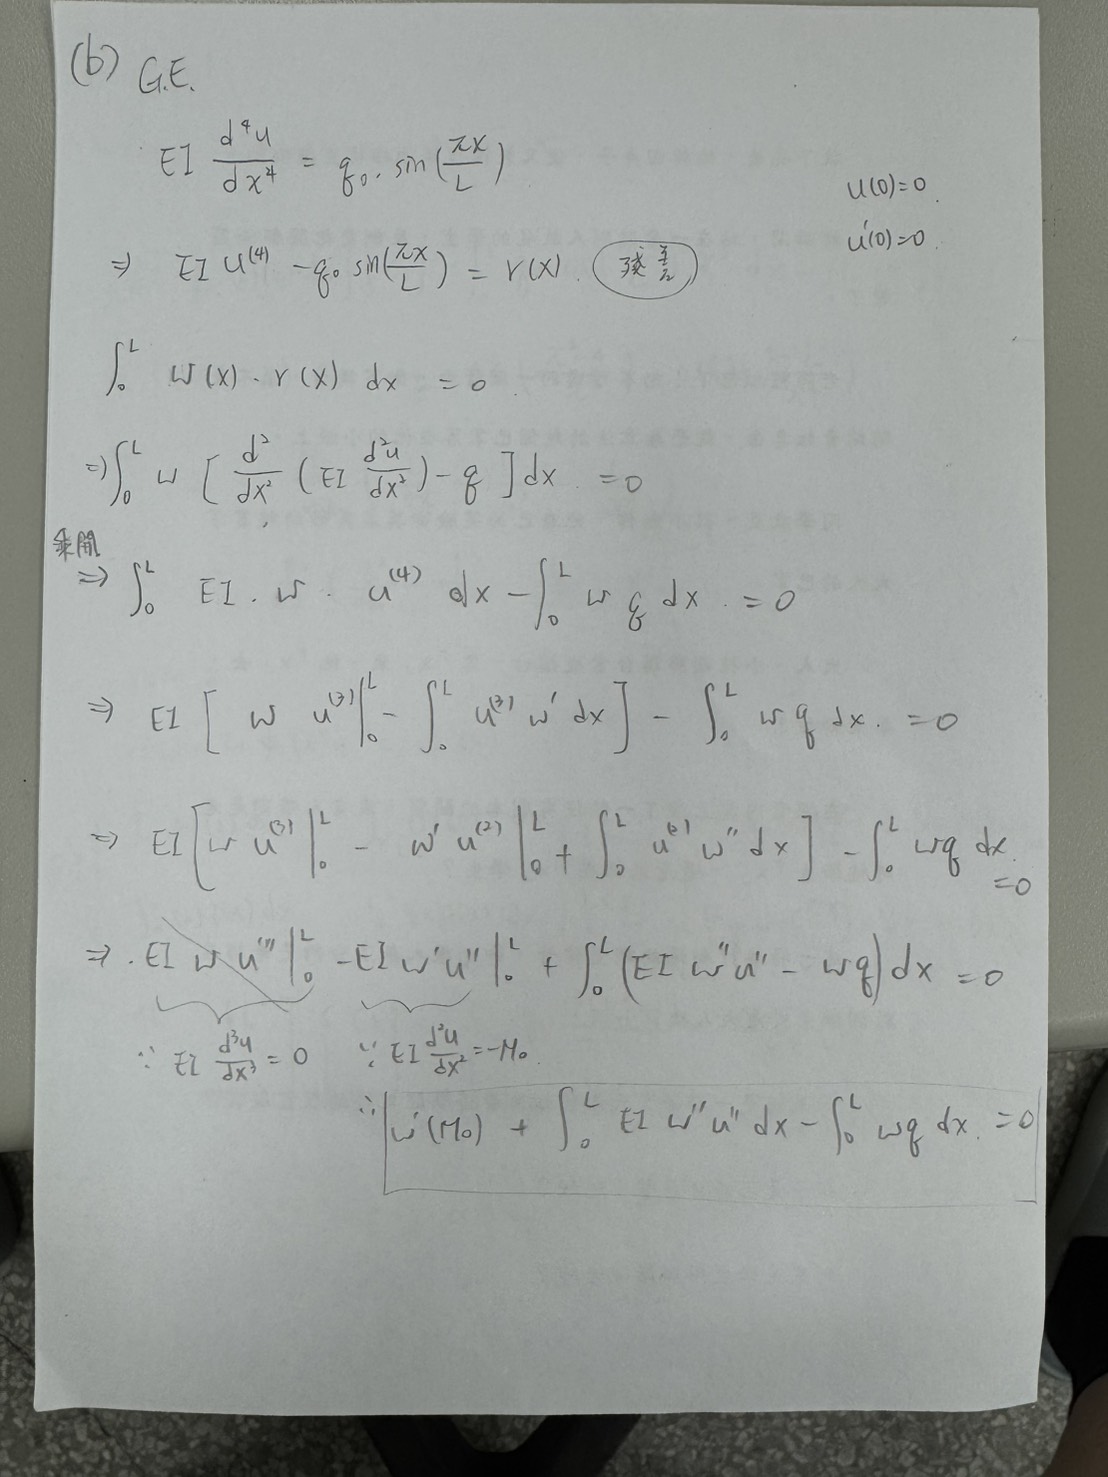 (b) G.E.
EI d⁴u/dx⁴ = q₀. sin(πx/L)
u(0)=0
u'(0)=0
⇒ EI u⁽⁴⁾ - q₀ sin(πx/L) = r(x). 殘差
∫₀ᴸ w(x) · r(x) dx = 0
⇒ ∫₀ᴸ w [ d²/dx² (EI d²u/dx²) - q ] dx = 0
乘開
⇒ ∫₀ᴸ EI . w . u⁽⁴⁾ dx - ∫₀ᴸ w q dx . = 0
⇒ EI [ w u⁽³⁾|₀ᴸ - ∫₀ᴸ u⁽³⁾ w' dx ] - ∫₀ᴸ w q dx. = 0
⇒ EI [ w u⁽³⁾|₀ᴸ - w' u⁽²⁾|₀ᴸ + ∫₀ᴸ u⁽²⁾ w'' dx ] - ∫₀ᴸ wq dx. = 0
⇒ . EI w u'''|₀ᴸ - EI w'u''|₀ᴸ + ∫₀ᴸ (EI w''u'' - wq) dx = 0
∵ EI d³u/dx³ = 0 ∵ EI d²u/dx² = -M₀.
∴ w'(M₀) + ∫₀ᴸ EI w''u'' dx - ∫₀ᴸ wq dx. = 0